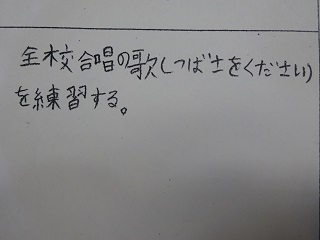 全校合唱の歌(つばさをください)
を練習する。